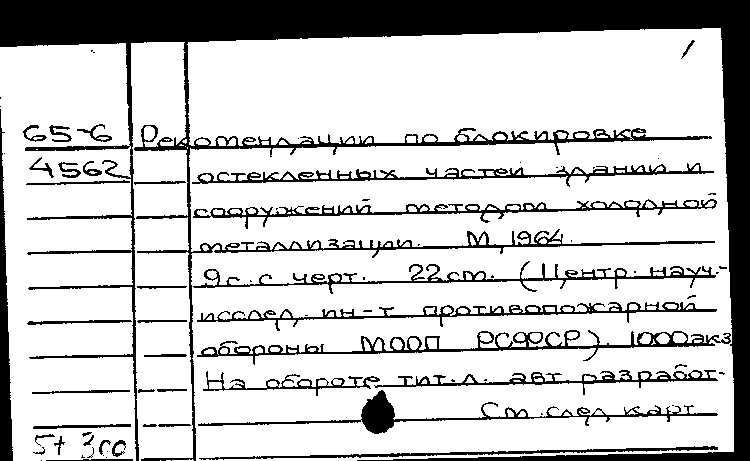 1
65-6 Рекомендации по блокировке
4562 остекленных частей зданий и
сооружений методом холодной
металлизации. М., 1964.
9 с. с черт. 22 см. (Центр. науч.-
исслед. ин-т противопожарной
обороны МООП РСФСР). 1000 экз.
На обороте тит. л. авт. разработ-
См. след. карт.